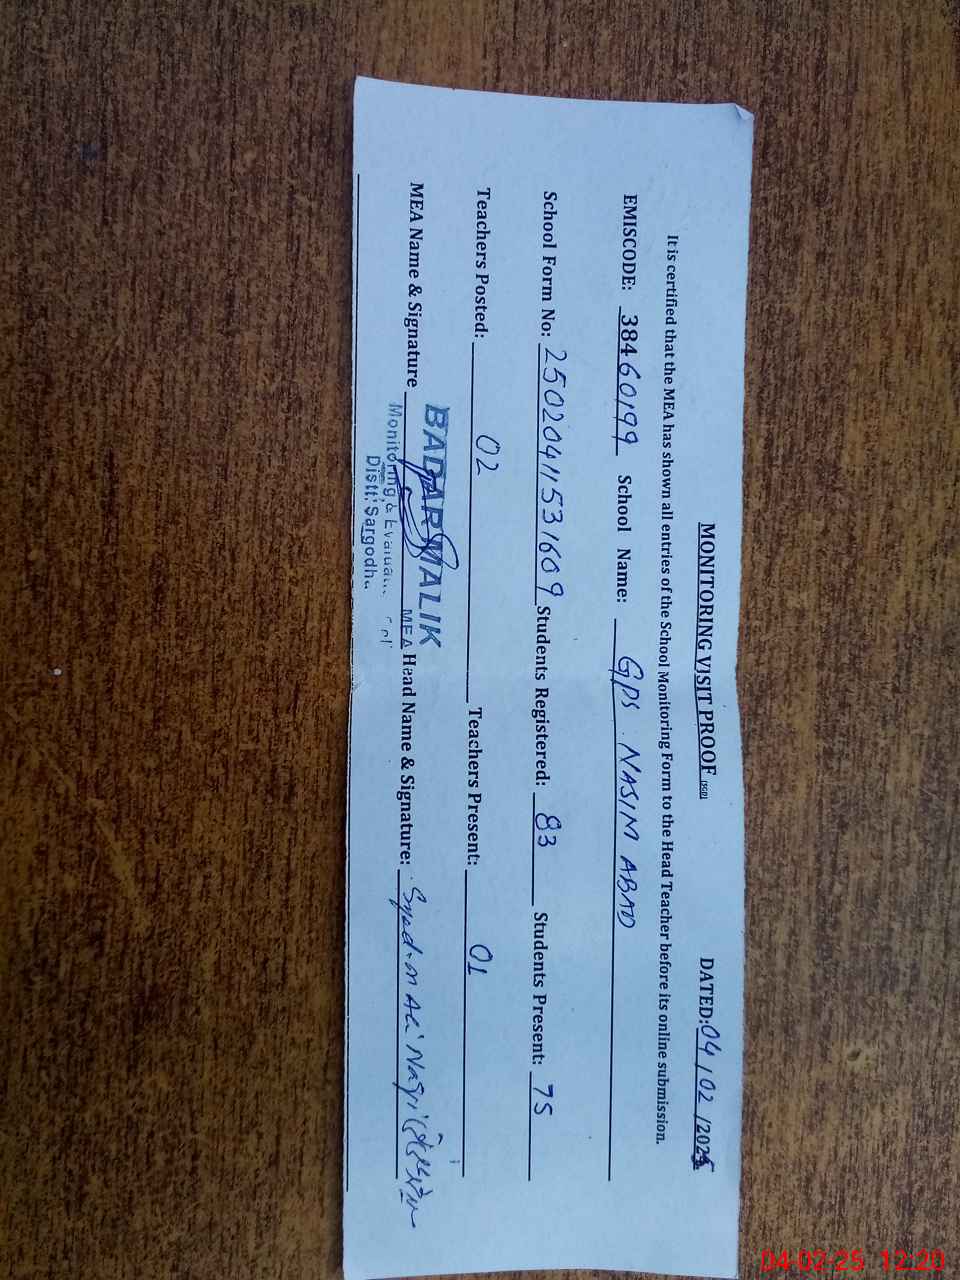 MONITORING VISIT PROOF (SGD) DATED: 04/02/2025
It is certified that the MEA has shown all entries of the School Monitoring Form to the Head Teacher before its online submission.
EMISCODE: 38460199 School Name: GPS NASIM ABAD
School Form No: 2502041153 1609 Students Registered: 83 Students Present: 75
Teachers Posted: 02 Teachers Present: 01
MEA Name & Signature BADAR MALIK MEA Head Name & Signature: Syed M Ali Naqvi
Monitoring & Evaluation Cell
Distt: Sargodha
04-02-25 12:20